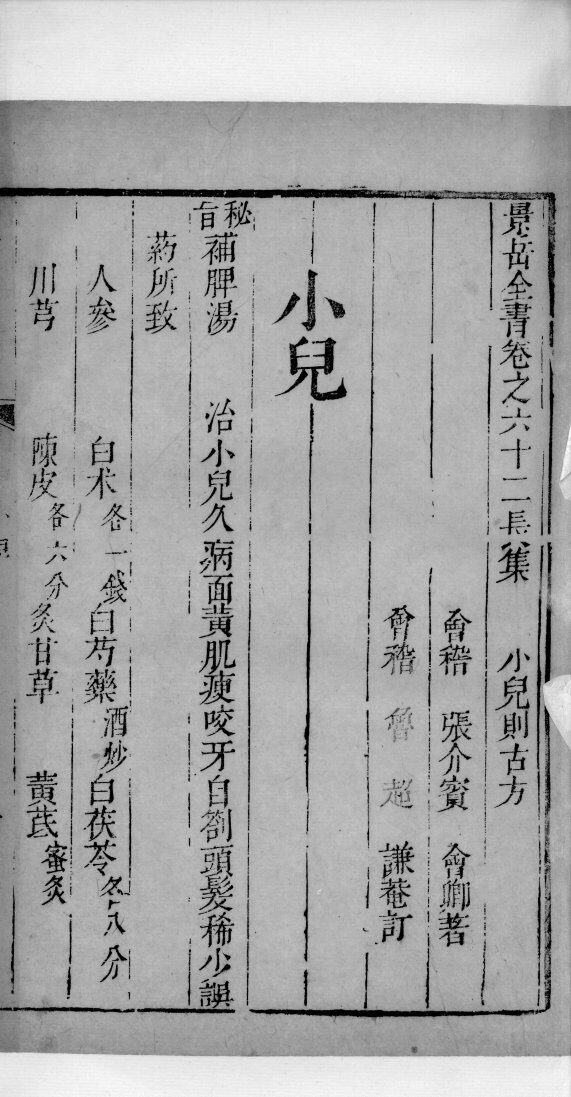 景岳全書卷之六十二長集　小兒則古方
會稽　張介賓　會卿著
會稽　魯超　謙菴訂
小兒
秘旨補脾湯　治小兒久病面黃肌瘦咬牙目劄頭髮稀少誤
药所致
人參　白朮各一錢白芍藥酒炒白茯苓各八分
川芎　陳皮各六分炙甘草　黃芪蜜炙